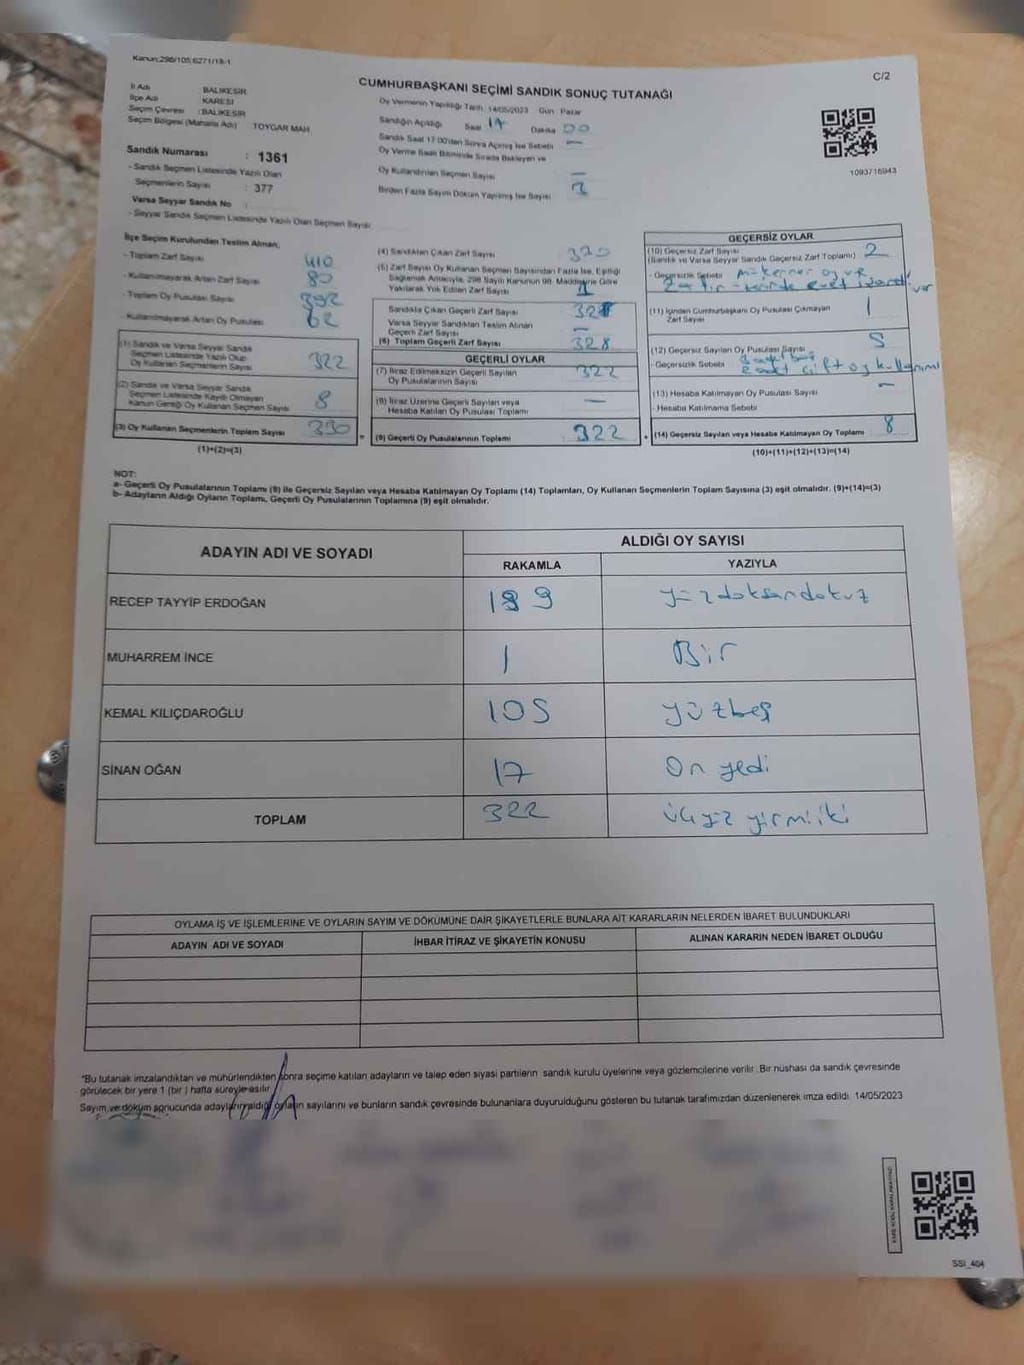 Kanun;298/105;6271/18-1
C/2
CUMHURBAŞKANI SEÇİMİ SANDIK SONUÇ TUTANAĞI
İl Adı BALIKESİR
İlçe Adı KARESİ
Seçim Çevresi : BALIKESİR
Seçim Bölgesi (Mahalle Adı) TOYGAR MAH.
Sandık Numarası : 1361
- Sandık Seçmen Listesinde Yazılı Olan
Seçmenlerin Sayısı : 377
Varsa Seyyar Sandık No :
- Seyyar Sandık Seçmen Listesinde Yazılı Olan Seçmen Sayısı
Oy Vermenin Yapıldığı Tarih 14/05/2023 Gün : Pazar
Sandığın Açıldığı Saat 17 Dakika 00
Sandık Saat 17:00'den Sonra Açılmış İse Sebebi —
Oy Verme Saati Bitiminde Sırada Bekleyen ve
Oy Kullandırılan Seçmen Sayısı —
Birden Fazla Sayım Döküm Yapılmış İse Sayısı
1093716943
İlçe Seçim Kurulundan Teslim Alınan;
- Toplam Zarf Sayısı 410
- Kullanılmayarak Artan Zarf Sayısı 80
- Toplam Oy Pusulası Sayısı 392
- Kullanılmayarak Artan Oy Pusulası 62
(1) Sandık ve Varsa Seyyar Sandık
Seçmen Listesinde Yazılı Olup
Oy Kullanan Seçmenlerin Sayısı 322
(2) Sandık ve Varsa Seyyar Sandık
Seçmen Listesinde Kayıtlı Olmayan
Kanun Gereği Oy Kullanan Seçmen Sayısı 8
(3) Oy Kullanan Seçmenlerin Toplam Sayısı 330
(1)+(2)=(3)
(4) Sandıktan Çıkan Zarf Sayısı 330
(5) Zarf Sayısı Oy Kullanan Seçmen Sayısından Fazla İse, Eşitliği
Sağlamak Amacıyla, 298 Sayılı Kanunun 98. Maddesine Göre
Yakılarak Yok Edilen Zarf Sayısı
Sandıkta Çıkan Geçerli Zarf Sayısı 328
Varsa Seyyar Sandıktan Teslim Alınan
Geçerli Zarf Sayısı —
(6) Toplam Geçerli Zarf Sayısı 328
GEÇERLİ OYLAR
(7) İtiraz Edilmeksizin Geçerli Sayılan
Oy Pusulalarının Sayısı 322
(8) İtiraz Üzerine Geçerli Sayılan veya
Hesaba Katılan Oy Pusulası Toplamı —
(9) Geçerli Oy Pusulalarının Toplamı 322
GEÇERSİZ OYLAR
(10) Geçersiz Zarf Sayısı
(Sandık ve Varsa Seyyar Sandık Geçersiz Zarf Toplamı) 2
- Geçersizlik Sebebi mükerrer oy
evet işareti var
(11) İçinden Cumhurbaşkanı Oy Pusulası Çıkmayan
Zarf Sayısı 1
(12) Geçersiz Sayılan Oy Pusulası Sayısı 5
- Geçersizlik Sebebi
2 adet çift oy kullanımı
(13) Hesaba Katılmayan Oy Pusulası Sayısı —
- Hesaba Katılmama Sebebi
(14) Geçersiz Sayılan veya Hesaba Katılmayan Oy Toplamı 8
(10)+(11)+(12)+(13)=(14)
NOT:
a- Geçerli Oy Pusulalarının Toplamı (9) ile Geçersiz Sayılan veya Hesaba Katılmayan Oy Toplamı (14) Toplamları, Oy Kullanan Seçmenlerin Toplam Sayısına (3) eşit olmalıdır. (9)+(14)=(3)
b- Adayların Aldığı Oyların Toplamı, Geçerli Oy Pusulalarının Toplamına (9) eşit olmalıdır.
ADAYIN ADI VE SOYADI
ALDIĞI OY SAYISI
RAKAMLA YAZIYLA
RECEP TAYYİP ERDOĞAN 199 yüzdoksandokuz
MUHARREM İNCE 1 Bir
KEMAL KILIÇDAROĞLU 105 yüzbeş
SİNAN OĞAN 17 On yedi
TOPLAM 322 üçyüz yirmiiki
OYLAMA İŞ VE İŞLEMLERİNE VE OYLARIN SAYIM VE DÖKÜMÜNE DAİR ŞİKAYETLERLE BUNLARA AİT KARARLARIN NELERDEN İBARET BULUNDUKLARI
ADAYIN ADI VE SOYADI İHBAR İTİRAZ VE ŞİKAYETİN KONUSU ALINAN KARARIN NEDEN İBARET OLDUĞU
*Bu tutanak imzalandıktan ve mühürlendikten sonra seçime katılan adayların ve talep eden siyasi partilerin sandık kurulu üyelerine veya gözlemcilerine verilir. Bir nüshası da sandık çevresinde
görülecek bir yere 1 (bir) hafta süreyle asılır.
Sayım ve döküm sonucunda adayların aldığı oyların sayılarını ve bunların sandık çevresinde bulunanlara duyurulduğunu gösteren bu tutanak tarafımızdan düzenlenerek imza edildi. 14/05/2023
SSI_404